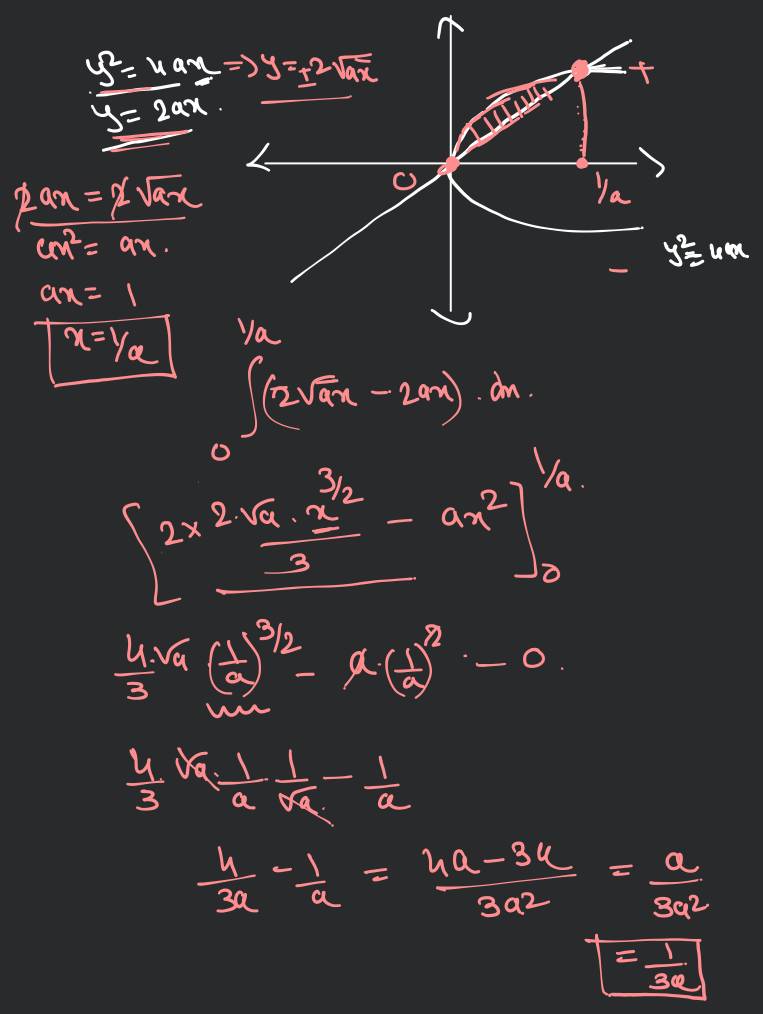 y² = 4ax => y = ±2√ax
y = 2ax.
+
0
1/a
y² = 4ax
−
2ax = 2√ax
ax² = ax.
ax = 1
x = 1/a
∫₀^{1/a} (2√ax − 2ax) . dx.
[2 × 2.√a . x^{3/2} / 3 − ax²]₀^{1/a}.
4/3 . √a (1/a)^{3/2} − a . (1/a)² . − 0.
4/3 . √a . 1/a . 1/√a. − 1/a
4/3a − 1/a = 4a − 3a / 3a² = a / 3a²
= 1/3a